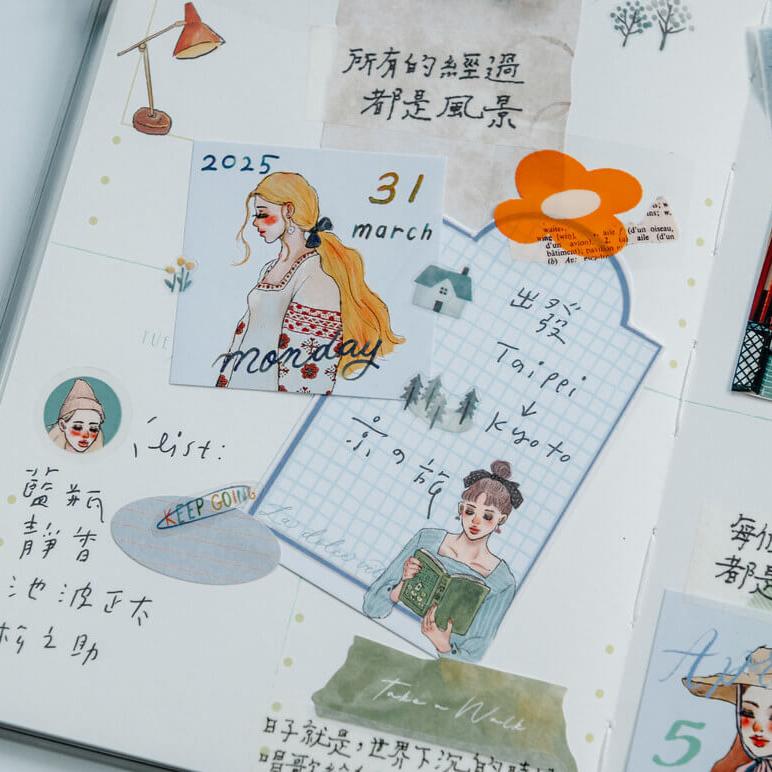 所有的經過
都是風景
2025
31
march
monday
waiter,
wing (win), aile f (d'un oiseau,
d'un avion). 2. (a) aile (d'un
bâtiment); pavillon
出發
Taipei
↓
Kyoto
京の旅
TUE
list:
藍瓶
靜香
池波正太
松之助
KEEP GOING
Take a Walk
日子就是，世界下沉的時候
唱歌給
每個
都是
5